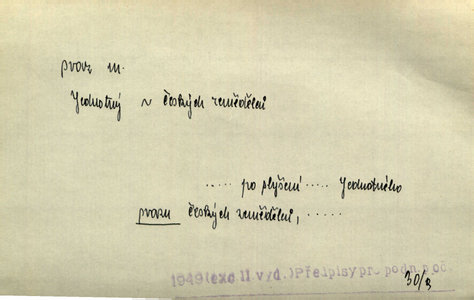 svaz m.
Jednotný ~ českých zemědělců
..... po slyšení ..... Jednotného
svazu českých zemědělců, .....
1949 (exc II v/d.) Předpisy pr. podn.
30/